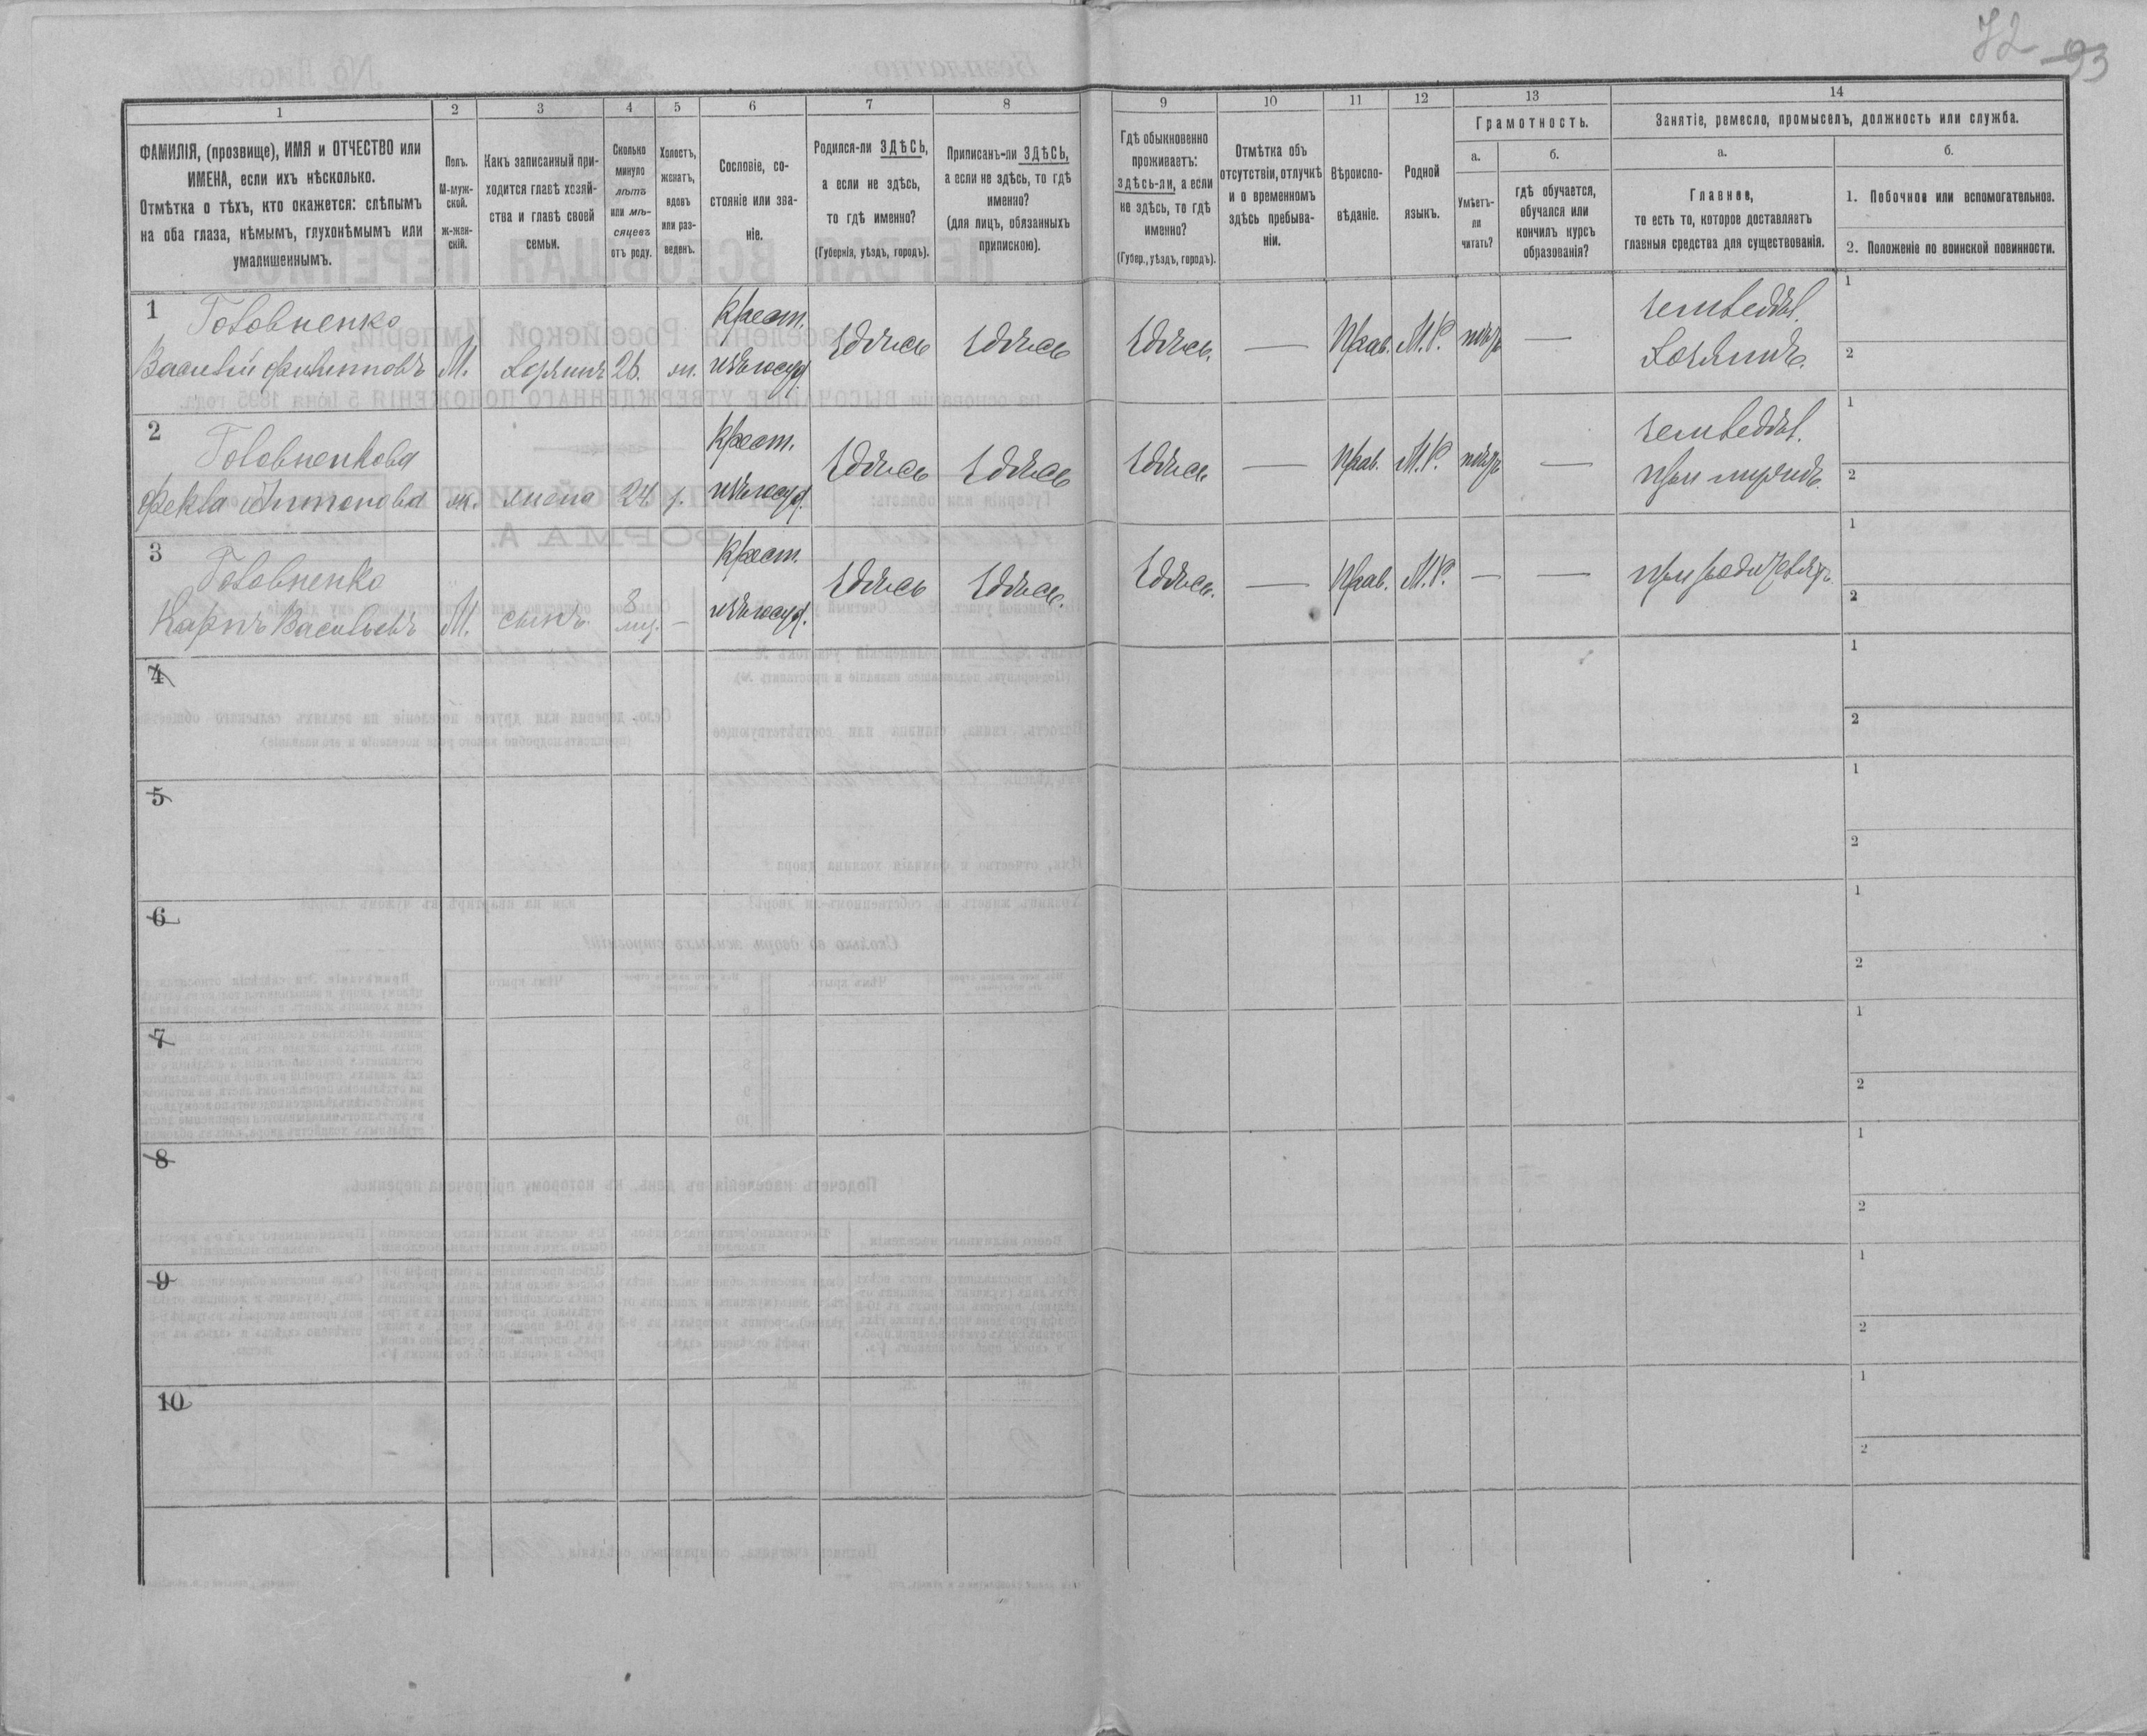 72 93
1
ФАМИЛІЯ, (прозвище), ИМЯ и ОТЧЕСТВО или
ИМЕНА, если ихъ нѣсколько.
Отмѣтка о тѣхъ, кто окажется: слѣпымъ
на оба глаза, нѣмымъ, глухонѣмымъ или
умалишеннымъ.
2
Полъ.
М-муж-
ской.
ж-жен-
скій.
3
Какъ записанный при-
ходится главѣ хозяй-
ства и главѣ своей
семьи.
4
Сколько
минуло
лѣтъ
или мѣ-
сяцевъ
отъ роду.
5
Холостъ,
женатъ,
вдовъ
или раз-
веденъ.
6
Сословіе, со-
стояніе или зва-
ніе.
7
Родился-ли ЗДѢСЬ,
а если не здѣсь,
то гдѣ именно?
(Губернія, уѣздъ, городъ).
8
Приписанъ-ли ЗДѢСЬ,
а если не здѣсь, то гдѣ
именно?
(для лицъ, обязанныхъ
припискою).
9
Гдѣ обыкновенно
проживаетъ:
здѣсь-ли, а если
не здѣсь, то гдѣ
именно?
(Губер., уѣздъ, городъ).
10
Отмѣтка объ
отсутствіи, отлучкѣ
и о временномъ
здѣсь пребыва-
ніи.
11
Вѣроиспо-
вѣданіе.
12
Родной
языкъ.
13
Грамотность.
а.
Умѣетъ-
ли
читать?
б.
гдѣ обучается,
обучался или
кончилъ курсъ
образованія?
14
Занятіе, ремесло, промыселъ, должность или служба.
а.
Главное,
то есть то, которое доставляетъ
главныя средства для существованія.
б.
1. Побочное или вспомогательное.
2. Положеніе по воинской повинности.
1 Головненко крест. земледѣл. 1
Василій Филипповъ М. хозяинъ 26. ж. изъ госуд. здѣсь здѣсь здѣсь. — Прав. М.Р. нѣтъ — хозяинъ. 2
2 Головненкова крест. земледѣл. 1
Фекла Антонова ж. жена 24. з. изъ госуд. здѣсь здѣсь здѣсь — Прав. М.Р. нѣтъ — при мужѣ. 2
3 Головненко крест. 1
Карпъ Васильевъ М. сынъ. 8 мц. — изъ госуд. здѣсь здѣсь. здѣсь. — Прав. М.Р. — — при родителяхъ. 2
4 1
2
5 1
2
6 1
2
7 1
2
8 1
2
9 1
2
10 1
2